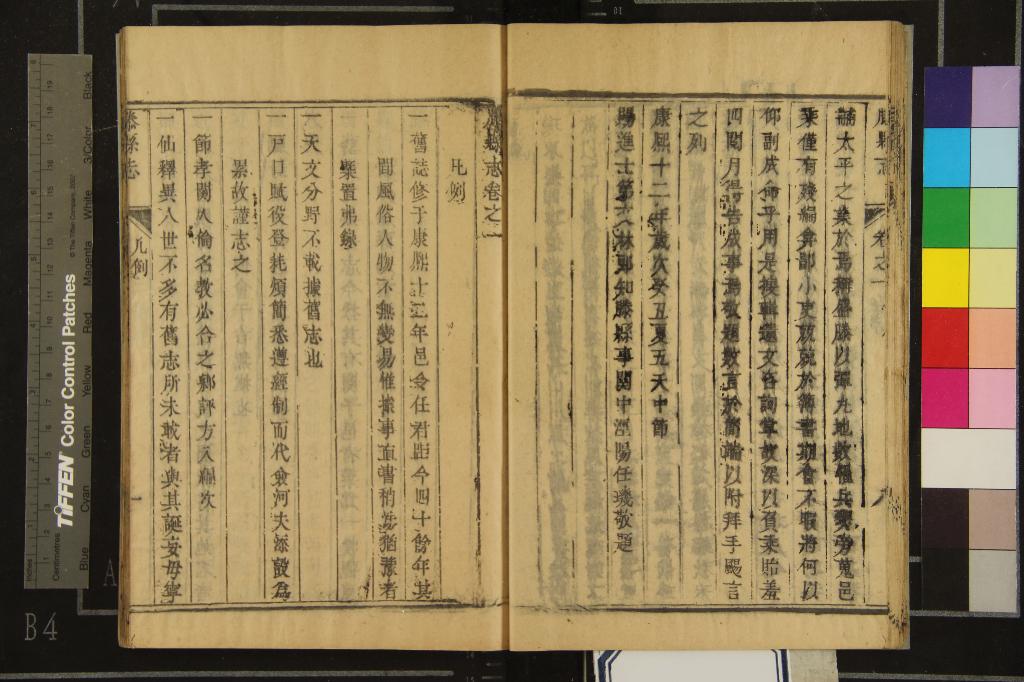 滕縣志 卷之一
誦太平之業於焉稱盛滕以彈丸地數罹兵燹旁蒐邑
乘僅有殘編弁鄙小吏兢兢於簿書期會不暇將何以
仰副成命乎用是搜輯遺文咨詢掌故深以負乘貽羞
四閱月得告成事焉敬題數言於簡端以附拜手颺言
之列
康熙十二年歲次癸丑夏五天中節
賜進士第文林郎知滕縣事關中涇陽任璣敬題
滕縣志卷之一
凡例
一舊誌修于康熙十二年邑令任君距今四十餘年其
間風俗人物不無變易惟據事直書稍涉猶豫者
槩置弗錄
一天文分野不載據舊志也
一戶口賦役登耗煩簡悉遵經制而代僉河夫添設為
累故謹志之
一節孝關人倫名教必合之鄉評方入編次
一仙釋異人世不多有舊志所未載者與其誕妄毋寧
滕縣志 凡例 一
TIFFEN Color Control Patches
© The Tiffen Company, 2007
Inches
Centimetres
Blue
Cyan
Green
Yellow
Red
Magenta
White
3/Color
Black
B4
A